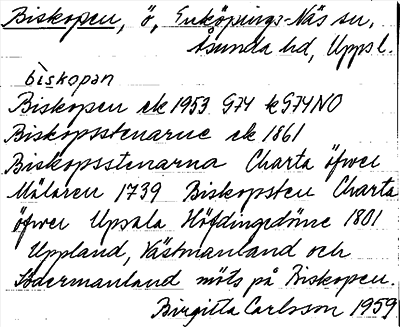 Biskopen, ö, Enköpings-Näs sn,
Åsunda hd, Uppsl.
bìskopan
Biskopen ek 1953 G74 kG74NO
Biskopsstenarne ek 1861
Biskopsstenarna Charta öfwer
Mälaren 1739 Biskopsten Charta
öfwer Upsala Höfdingedöme 1801
Uppland, Västmanland och
Södermanland möts på Biskopen.
Birgitta Carlsson 1959